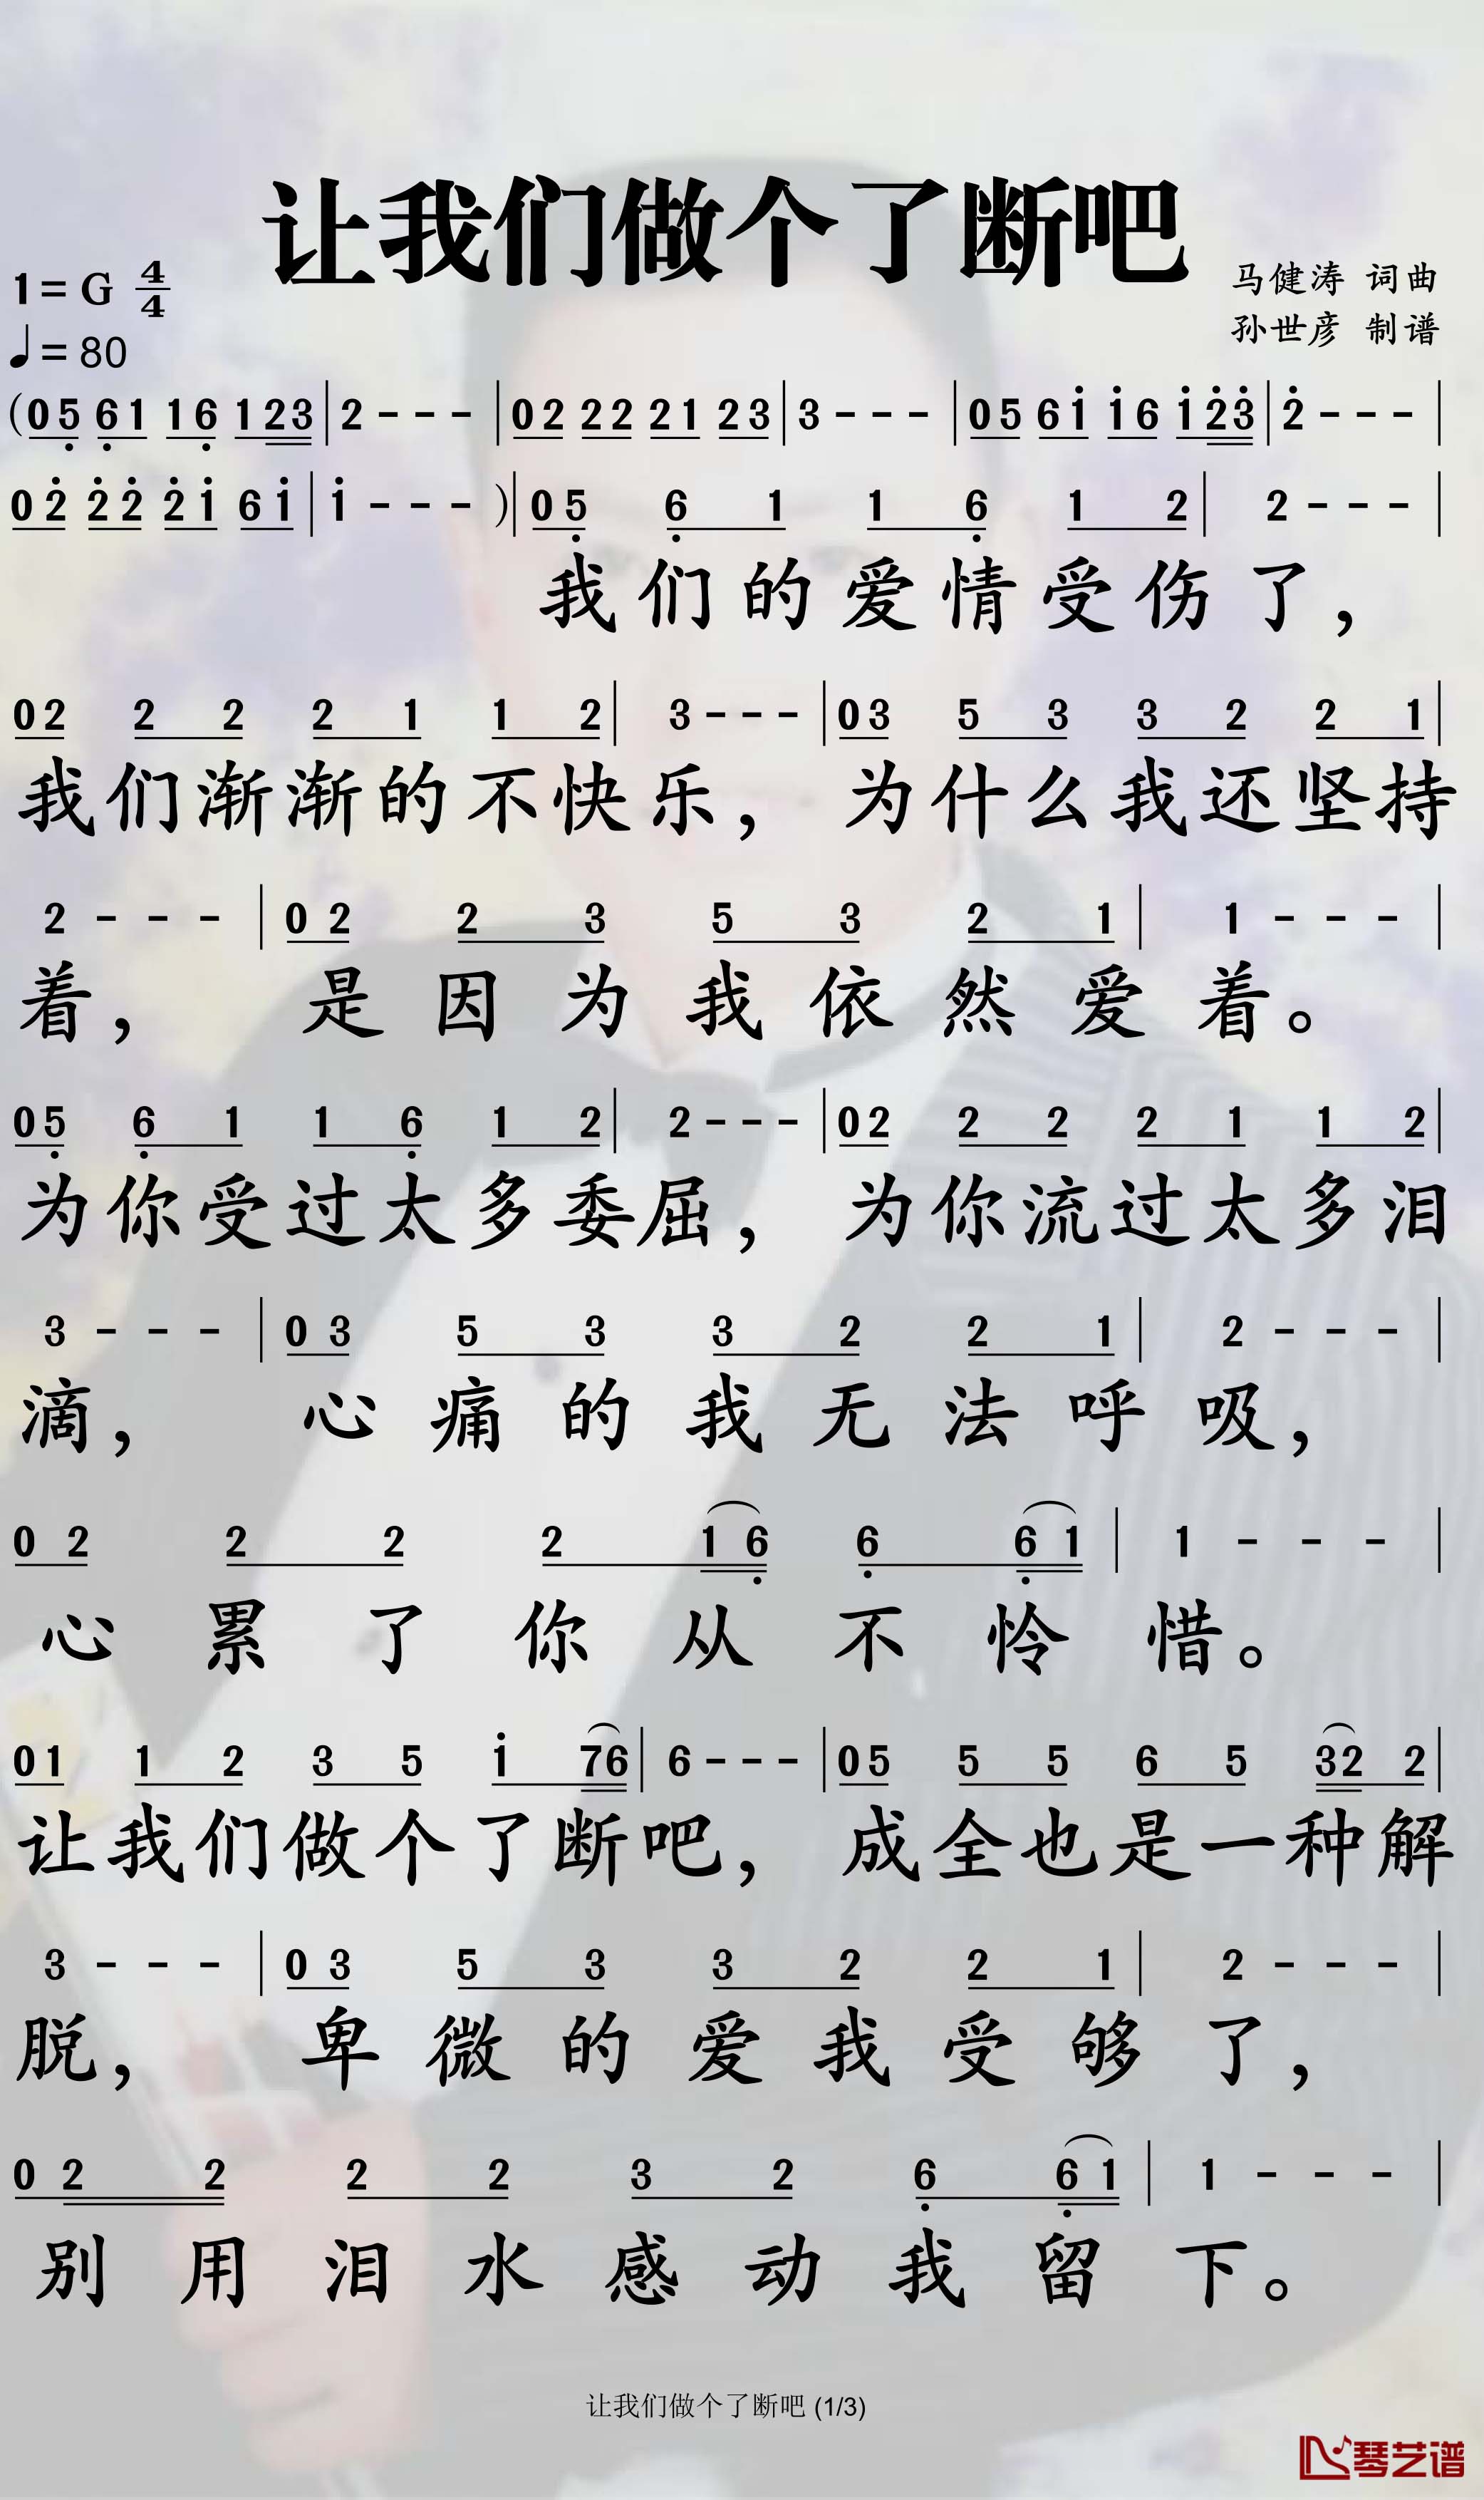 让我们做个了断吧
1=G 4/4
马健涛 词曲
♩=80
孙世彦 制谱
(05̣ 6̣1 16̣ 123|2---|02 22 21 23|3---|05 6i̇ i̇6 i̇2̇3̇|2̇---|
02̇ 2̇2̇ 2̇i̇ 6i̇|i̇---)|05̣ 6̣1 16̣ 12|2---|
我们的爱情受伤了，
02 22 21 12|3---|03 53 32 21|
我们渐渐的不快乐，为什么我还坚持
2---|02 23 53 21|1---|
着，是因为我依然爱着。
05̣ 6̣1 16̣ 12|2---|02 22 21 12|
为你受过太多委屈，为你流过太多泪
3---|03 53 32 21|2---|
滴，心痛的我无法呼吸，
02 22 216̣ 6̣6̣1|1---|
心累了你从不怜惜。
01 12 35 i̇76|6---|05 55 65 322|
让我们做个了断吧，成全也是一种解
3---|03 53 32 21|2---|
脱，卑微的爱我受够了，
022 22 32 6̣6̣1|1---|
别用泪水感动我留下。
让我们做个了断吧 (1/3)
琴艺谱